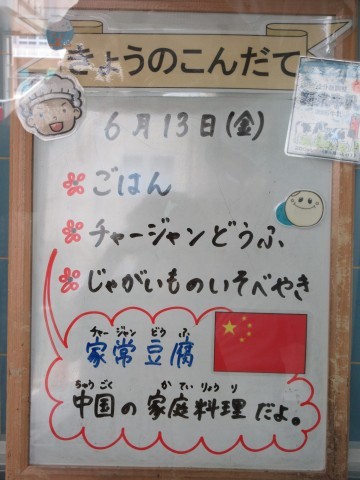 きょうのこんだて
6月13日(金)
ごはん
チャージャンどうふ
じゃがいものいそべやき
チャー ジャン どう ふ
家常豆腐
ちゅうごく か てい りょう り
中国の家庭料理だよ。